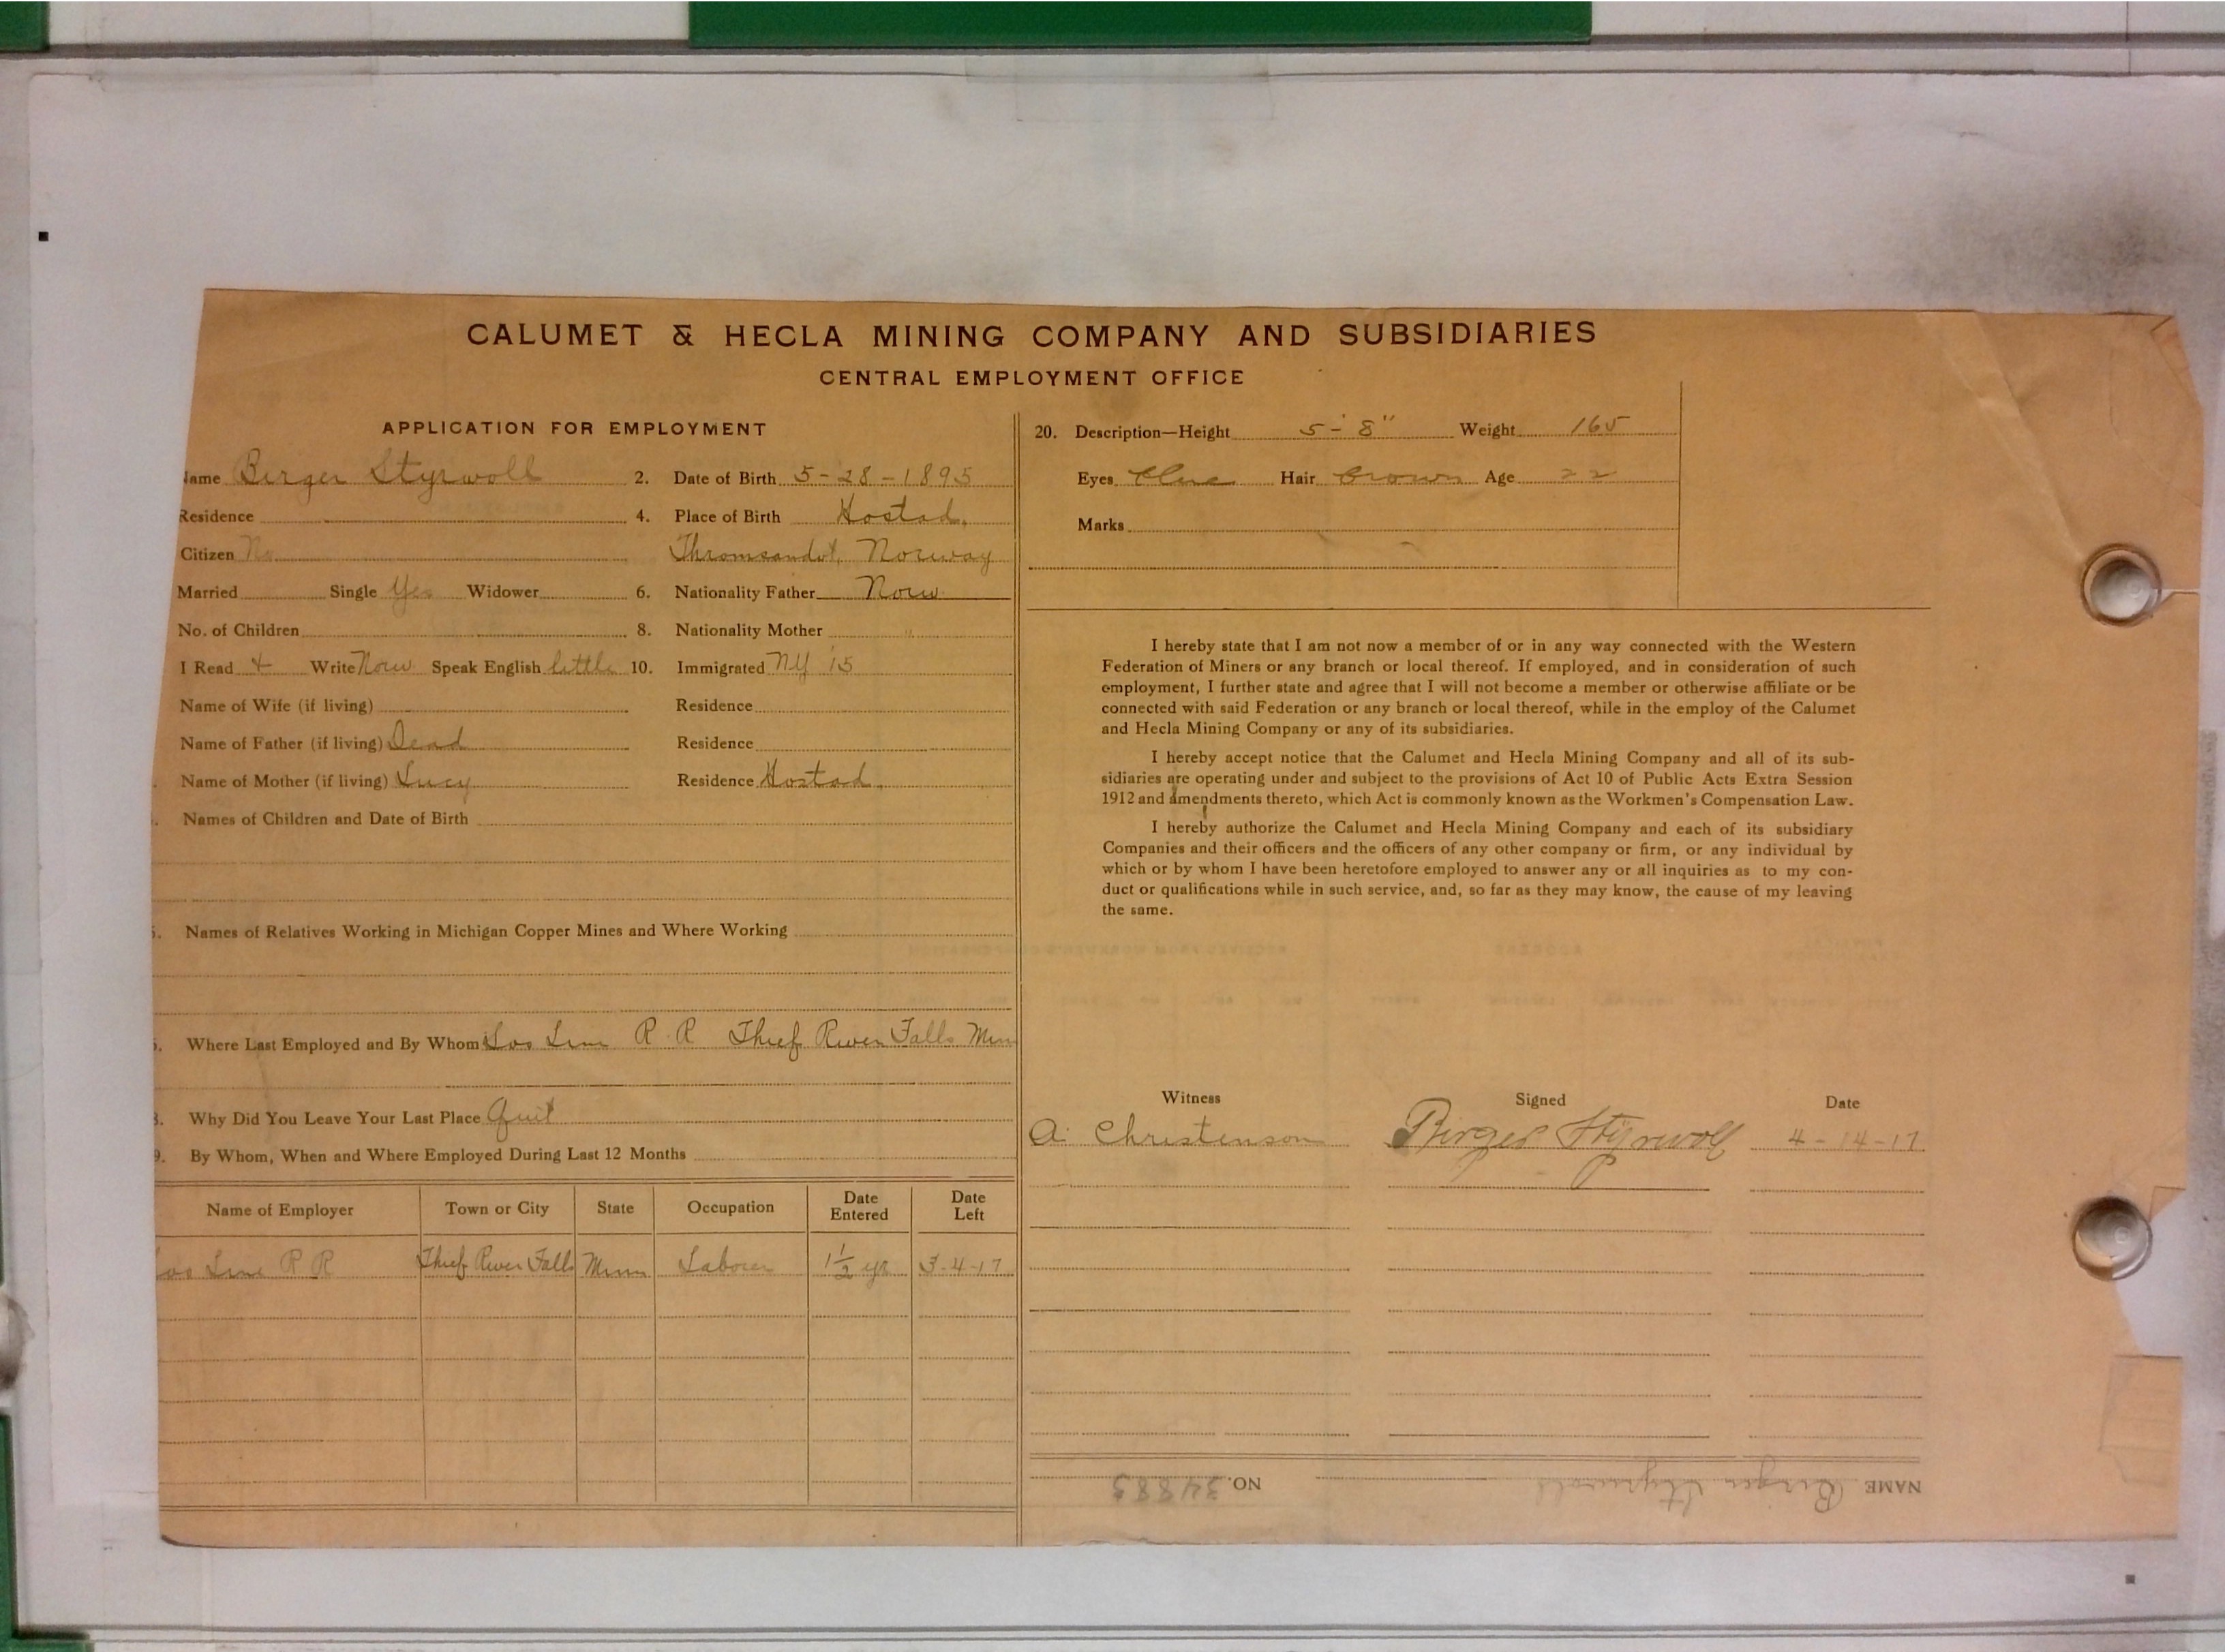 CALUMET & HECLA MINING COMPANY AND SUBSIDIARIES
CENTRAL EMPLOYMENT OFFICE
APPLICATION FOR EMPLOYMENT
Name Birger Styrwoll 2. Date of Birth 5-28-1895
Residence 4. Place of Birth Hostad.
Citizen No Norway
Married Single Yes Widower 6. Nationality Father Norw
No. of Children 8. Nationality Mother "
I Read + Write Norw Speak English little 10. Immigrated NY '15
Name of Wife (if living) Residence
Name of Father (if living) Dead Residence
Name of Mother (if living) Lucy Residence Hostad.
Names of Children and Date of Birth
Names of Relatives Working in Michigan Copper Mines and Where Working
Where Last Employed and By Whom Soo Line R R Thief River Falls Minn
Why Did You Leave Your Last Place Quit
9. By Whom, When and Where Employed During Last 12 Months
Name of Employer Town or City State Occupation Date Entered Date Left
Soo Line R R Thief River Falls Minn Laborer 1 1/2 yr 3-4-17
20. Description—Height 5-'8" Weight 165
Eyes blue Hair brown Age 22
Marks
I hereby state that I am not now a member of or in any way connected with the Western
Federation of Miners or any branch or local thereof. If employed, and in consideration of such
employment, I further state and agree that I will not become a member or otherwise affiliate or be
connected with said Federation or any branch or local thereof, while in the employ of the Calumet
and Hecla Mining Company or any of its subsidiaries.
I hereby accept notice that the Calumet and Hecla Mining Company and all of its sub-
sidiaries are operating under and subject to the provisions of Act 10 of Public Acts Extra Session
1912 and amendments thereto, which Act is commonly known as the Workmen's Compensation Law.
I hereby authorize the Calumet and Hecla Mining Company and each of its subsidiary
Companies and their officers and the officers of any other company or firm, or any individual by
which or by whom I have been heretofore employed to answer any or all inquiries as to my con-
duct or qualifications while in such service, and, so far as they may know, the cause of my leaving
the same.
Witness Signed Date
A. Christenson Birger Styrwoll 4-14-17
NAME Birger Styrwoll NO. 34885